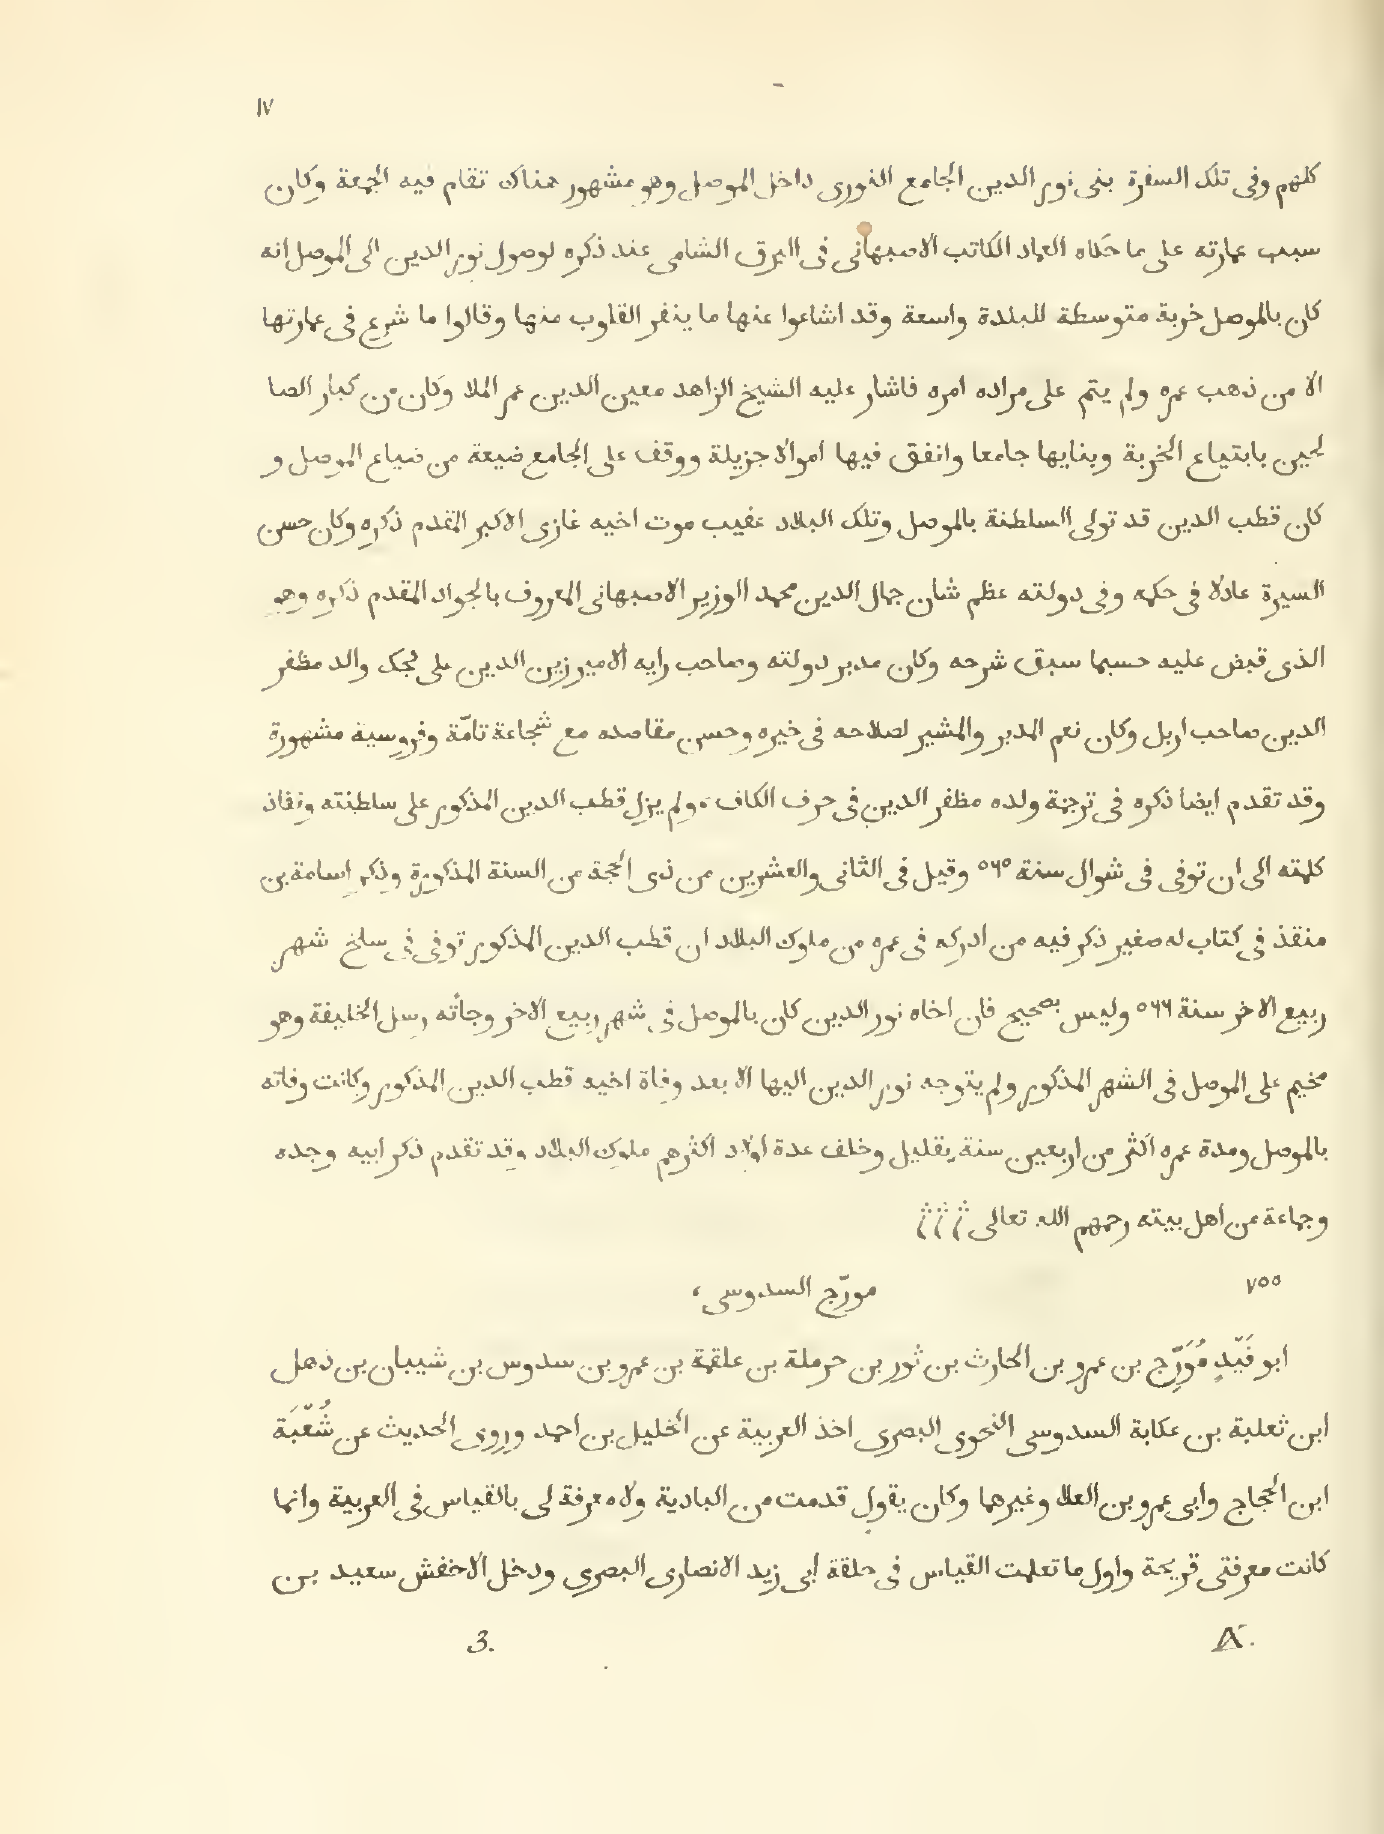 ١٧
كلهم وفى تلك السفرة بنى نور الدين الجامع النورى داخل الموصل وهو مشهور هناك تقام فيه الجمعة وكان
سبب عمارته على ما حكاه العماد الكاتب الاصبهانى فى البرق الشامى عند ذكره لوصول نور الدين الى الموصل انه
كان بالموصل خربة متوسطة للبلدة واسعة وقد اشاعوا عنها ما ينفر القلوب منها وقالوا ما شرع فى عمارتها
الا من ذهب عمره ولم يتم على مراده امره فاشار عليه الشيخ الزاهد معين الدين عمر الملا وكان من كبار الصا
لحين بابتياع الخربة وبنايها جامعا وانفق فيها اموالا جزيلة ووقف على الجامع ضيعة من ضياع الموصل و
كان قطب الدين قد تولى السلطنة بالموصل وتلك البلاد عقيب موت اخيه غازى الاكبر المقدم ذكره وكان حسن
السيرة عادلا فى حكمه وفى دولته عظم شان جمال الدين محمد الوزير الاصبهانى المعروف بالجواد المقدم ذكره وهو
الذى قبض عليه حسبما سبق شرحه وكان مدبر دولته وصاحب رايه الامير زين الدين على كجك والد مظفر
الدين صاحب اربل وكان نعم المدبر والمشير لصلاحه فى خيره وحسن مقاصده مع شجاعة تامّة وفروسية مشهورة
وقد تقدم ايضا ذكره فى ترجمة ولده مظفر الدين فى حرف الكاف، ولم يزل قطب الدين المذكور على سلطنته ونفاذ
كلمته الى ان توفى فى شوال سنة ٥٦٥ وقيل فى الثانى والعشرين من ذى الحجة من السنة المذكورة وذكر اسامة بن
منقذ فى كتاب له صغير ذكر فيه من ادركه فى عمره من ملوك البلاد ان قطب الدين المذكور توفى فى سلخ شهر
ربيع الاخر سنة ٥٦٦ وليس بصحيح فان اخاه نور الدين كان بالموصل فى شهر ربيع الاخر وجأته رسل الخليفة وهو
مخيم على الموصل فى الشهر المذكور ولم يتوجه نور الدين اليها الا بعد وفاة اخيه قطب الدين المذكور وكانت وفاته
بالموصل ومدة عمره اكثر من اربعين سنة بقليل وخلف عدة أولاد اكثرهم ملوك البلاد وقد تقدم ذكر ابيه وجده
وجماعة من اهل بيته رحمهم الله تعالى
٧٥٥ مورّج السدوسى،
ابو فَيّدٍ مُوَرِّج بن عمرو بن الحارث بن ثور بن حرملة بن علقمة بن عمرو بن سدوس بن شيبان بن ذهل
ابن ثعلبة بن عكابة السدوسى النحوى البصرى اخذ العربية عن الخليل بن احمد وروى الحديث عن شُعّبَة
ابن الحجاج وابى عمرو بن العلا وغيرهما وكان يقول قدمت من البادية ولا معرفة لى بالقياس فى العربية وانما
كانت معرفتى قريحة واول ما تعلمت القياس فى حلقة أبى زيد الانصارى البصرى ودخل الاخفش سعيد بن
3.